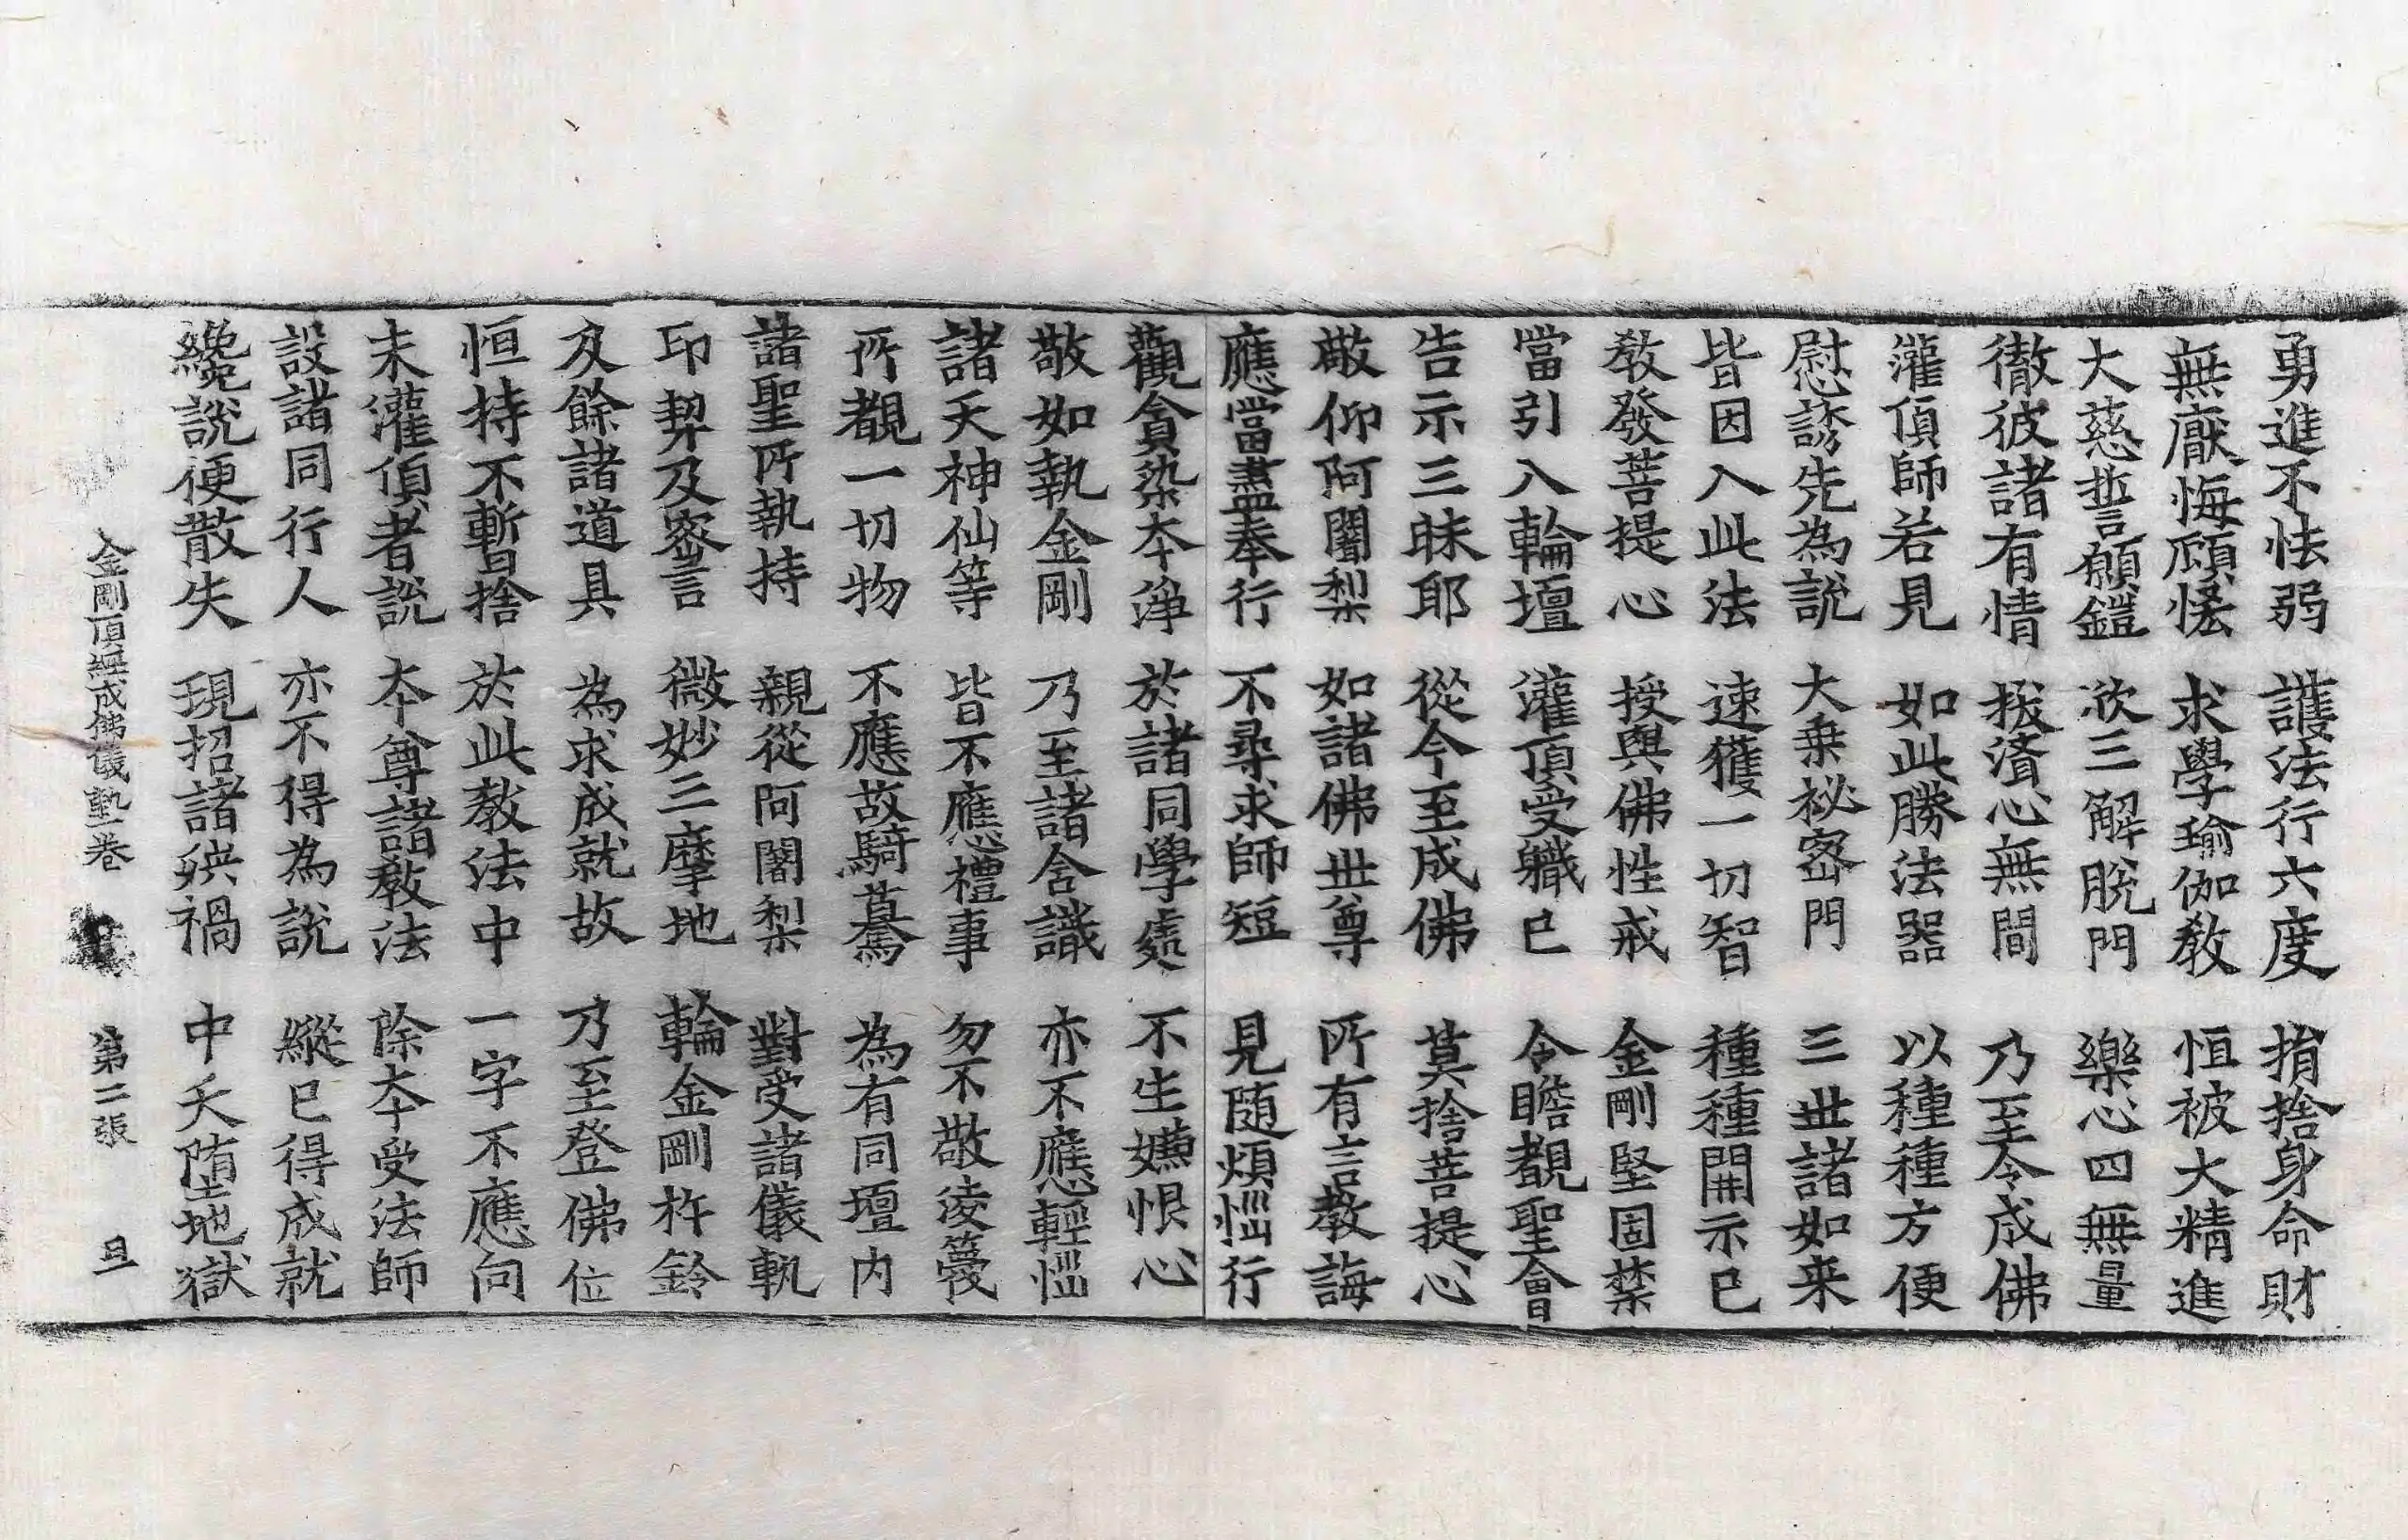 勇進不怯弱 護法行六度 捐捨身命財
無厭悔頋恡 求學瑜伽教 恒被大精進
大慈誓願鎧 次三解脫門 樂心四無量
徹彼諸有情 拔濟心無間 乃至令成佛
灌頂師若見 如此勝法器 以種種方便
慰誘先為說 大乗祕密門 三世諸如来
皆因入此法 速獲一切智 種種開示已
教發菩提心 授與佛性戒 金剛堅固禁
當引入輪壇 灌頂受軄已 令瞻覩聖會
告示三昧耶 從今至成佛 莫捨菩提心
敬仰阿闍梨 如諸佛世尊 所有言教誨
應當盡奉行 不尋求師短 見随煩惱行
觀貪染本淨 於諸同學處 不生嫌恨心
敬如執金剛 乃至諸含識 亦不應輕惱
諸天神仙等 皆不應禮事 勿不敬淩篾
所覩一切物 不應故騎驀 為有同壇內
諸聖所執持 親從阿闍梨 對受諸儀軌
印契及密言 微妙三摩地 輪金剛杵鈴
及餘諸道具 為求成就故 乃至登佛位
恒持不暫捨 於此教法中 一字不應向
未灌頂者說 本尊諸教法 除本受法師
設諸同行人 亦不得為說 縱已得成就
纔說便散失 現招諸殃禍 中夭墮地獄
金剛頂經成佛儀軌一卷 第二張 旦